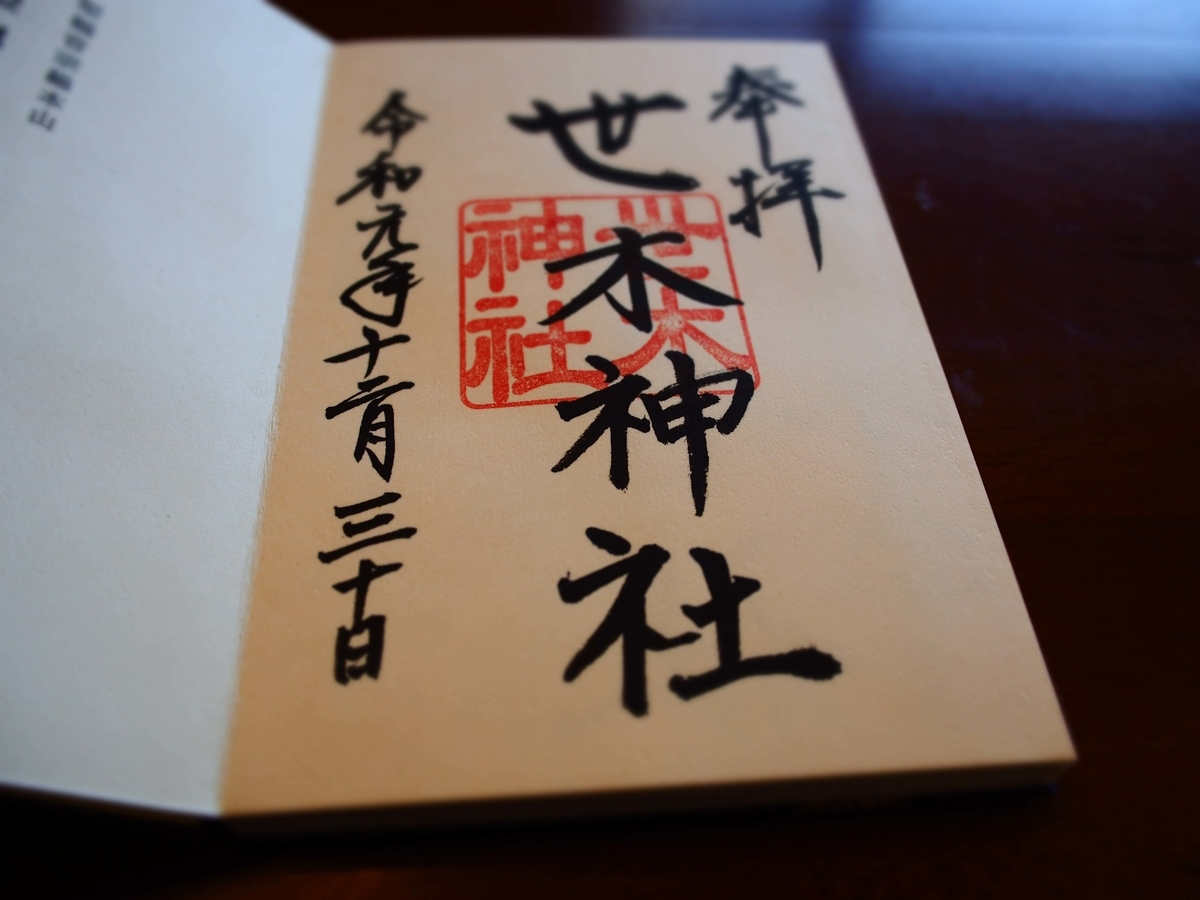 奉拝
世木神社
世木
神社
令和元年十二月三十日